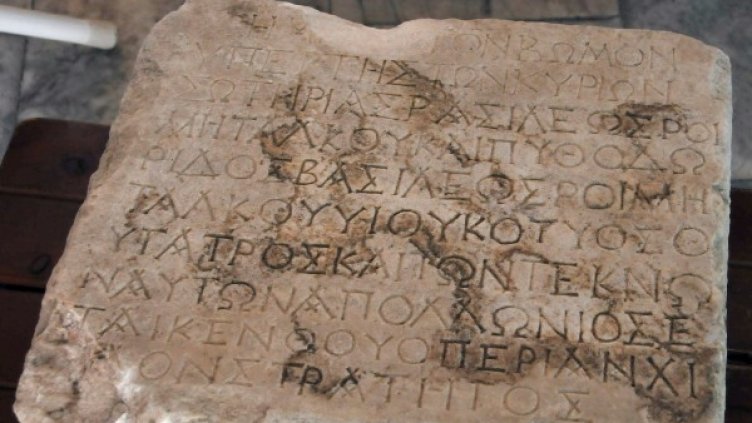 ΟΝΒΩΜΟΝ
ΥΠΕΡΤΗΣΤΩΝΚΥΡΙΩΝ
ΣΩΤΗΡΙΑΣΒΑΣΙΛΕΩΣΡΟΙ
ΜΗΤΑΛΚΟΥΚΑΙΠΥΘΟΔΩ
ΡΙΔΟΣΒΑΣΙΛΕΩΣΡΟΙΜΗ
ΤΑΛΚΟΥΥΙΟΥΚΟΤΥΟΣΘ
ΥΓΑΤΡΟΣΚΑΙΤΩΝΤΕΚΝΩ
ΝΑΥΤΩΝΑΠΟΛΛΩΝΙΟΣΕ
ΠΤΑΙΚΕΝΘΟΥΟΠΕΡΙΑΝΧΙ
ΑΛΟΝΣΤΡΑΤΗΓΟΣ